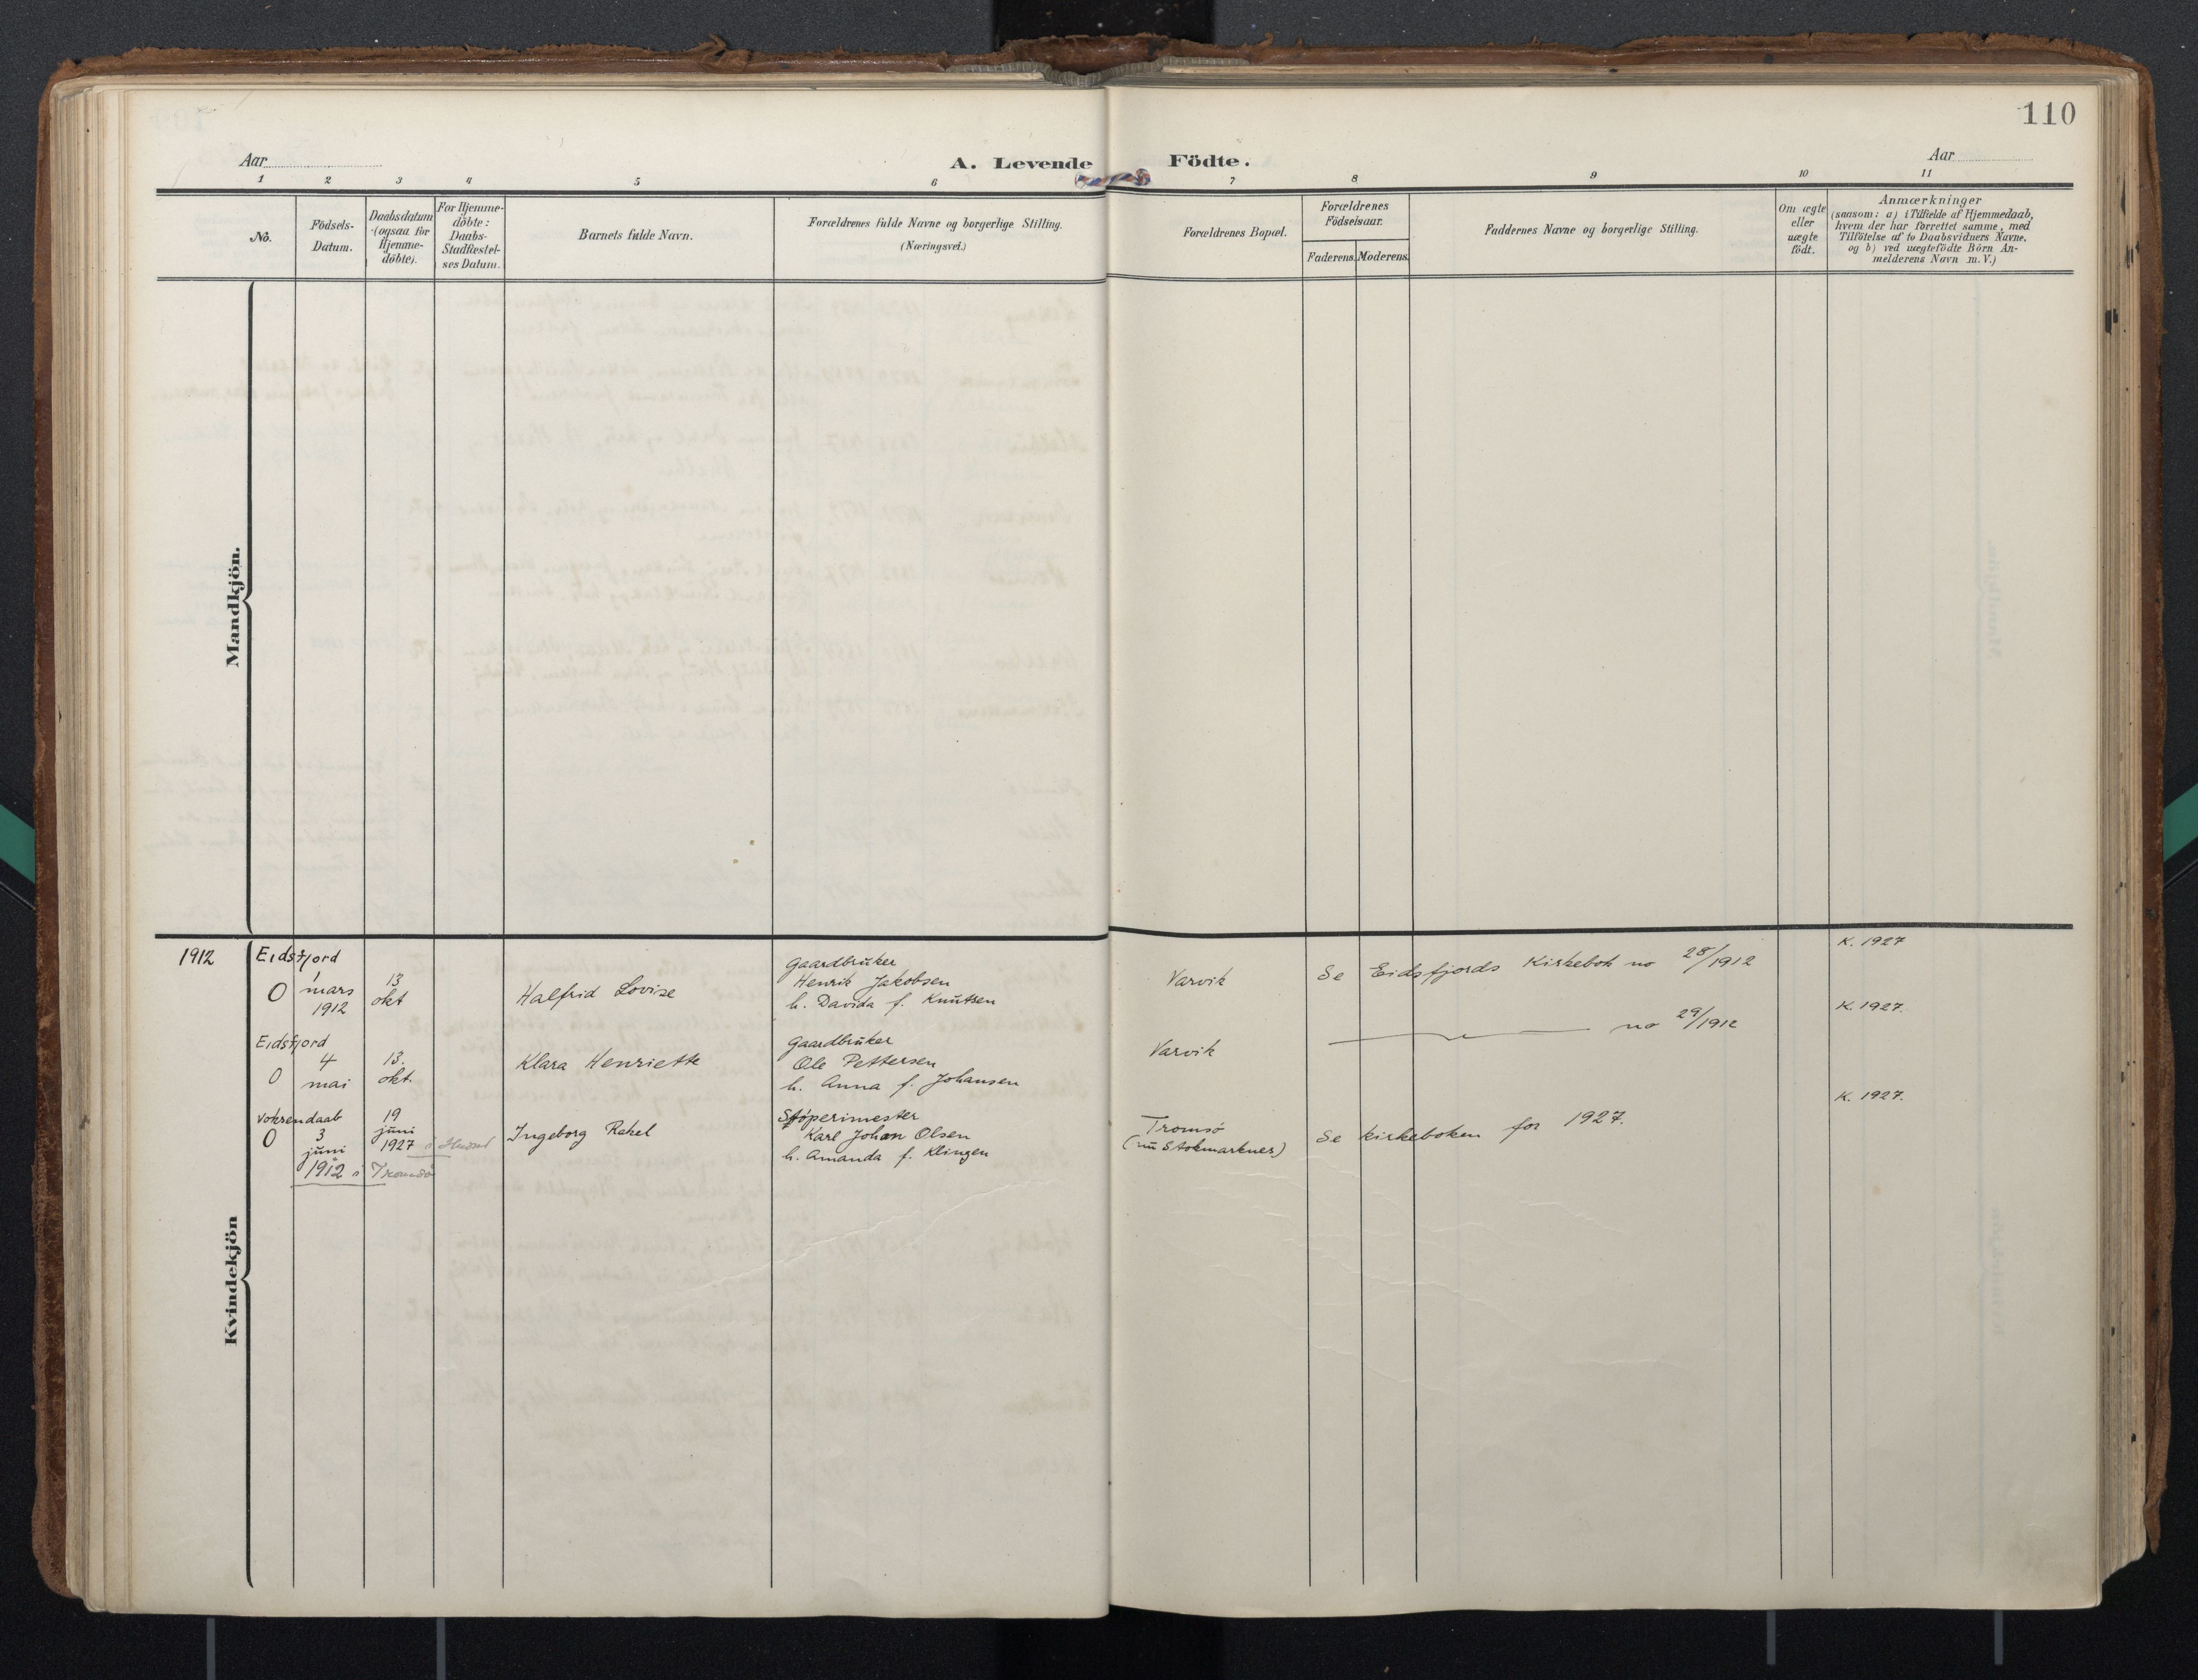 110
Aar
A. Levende Födte.
Aar
1 2 3 4 5 6 7 8 9 10 11
No.
Födsels-
Datum.
Daabsdatum
(ogsaa for
Hjemme-
döbte).
For Hjemme-
döbte:
Daabs-
Stadfæstel-
ses Datum.
Barnets fulde Navn.
Forældrenes fulde Navne og borgerlige Stilling.
(Næringsvei.)
Forældrenes Bopæl.
Forældrenes
Födselsaar.
Faderens. Moderens.
Faddernes Navne og borgerlige Stilling.
Om ægte
eller
uægte
födt.
Anmærkninger
(saasom: a) i Tilfælde af Hjemmedaab,
hvem der har forrettet samme, med
Tilföielse af to Daabsvidners Navne.
og b) ved uægtefödte Börn An-
melderens Navn m. V.)
Mandkjön.
Kvindekjön
1912
Eidsfjord
0
1
mars
1912
13
okt
Halfrid Lovise
Gaardbruker
Henrik Jakobsen
h. Davida f. Knutsen
Varvik
Se Eidsfjords Kirkebok no 28/1912
K. 1927
Eidsfjord
0
4
mai
13.
okt.
Klara Henriette
Gaardbruker
Ole Pettersen
h. Anna f. Johansen
Varvik
no 29/1912
K. 1927.
Voksendaab
0
3
juni
1912 i Tromsø
19
juni
1927
Ingeborg Rakel
Støperimester
Karl Johan Olsen
h. Amanda f. Klingen
Tromsø
(nu Stokmarknes)
Se kirkeboken for 1927.
K. 1927.